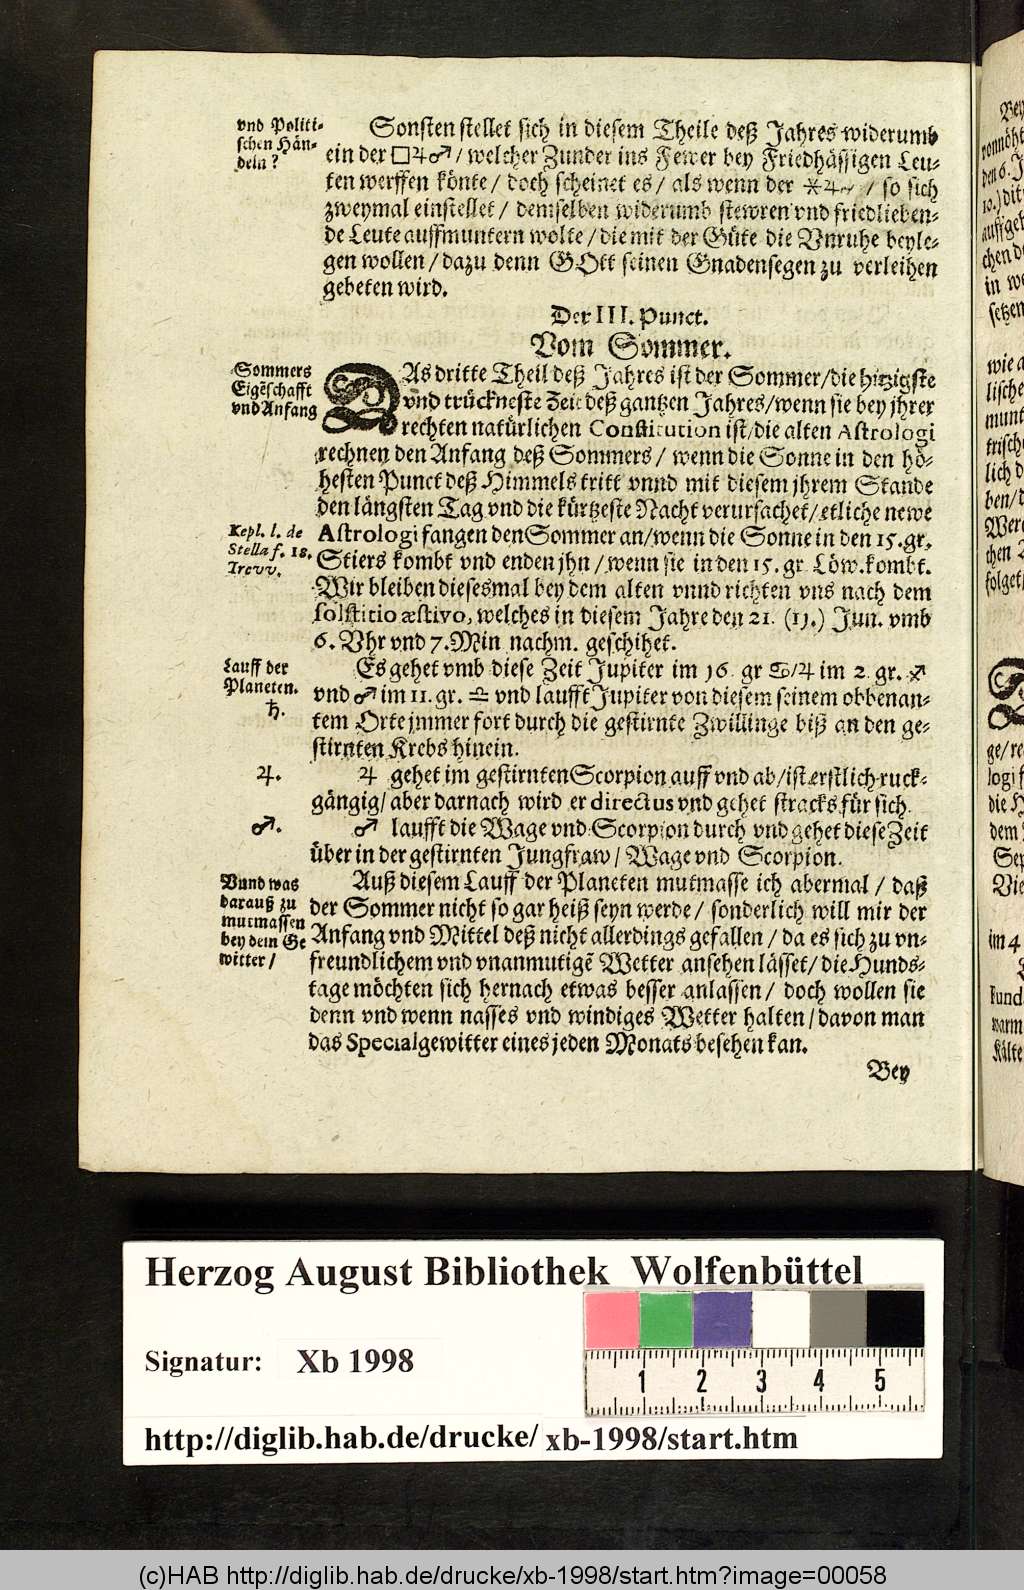 vnd Politi-
schen Hän-
deln?
Sonsten stellet sich in diesem Theile deß Jahres widerumb
ein der □♃♂ / welcher Zunder ins Fewer bey Friedhässigen Leu-
ten werffen könte / doch scheinet es / als wenn der ⚹♃ / so sich
zweymal einstellet / demselben widerumb stewren vnd friedlieben-
de Leute auffmuntern wolte / die mit der Güte die Vnruhe beyle-
gen wollen / dazu denn GOtt seinen Gnadensegen zu verleihen
gebeten wird.
Der III. Punct.
Vom Sommer.
Sommers
Eigẽschafft
vnd Anfang
DAs dritte Theil deß Jahres ist der Sommer / die hitzigste
vnd trückneste Zeit deß gantzen Jahres / wenn sie bey jhrer
rechten natürlichen Constitution ist / die alten Astrologi
rechnen den Anfang deß Sommers / wenn die Sonne in den hö-
hesten Punct deß Himmels tritt vnnd mit diesem jhrem Stande
den längsten Tag vnd die kürtzeste Nacht verursachet / etliche newe
Kepl. l. de
Stella f. 18.
Astrologi fangen den Sommer an / wenn die Sonne in den 15. gr.
Stiers kombt vnd enden jhn / wenn sie in den 15. gr Löw. kombt.
Wir bleiben diesesmal bey dem alten vnnd richten vns nach dem
solstitio æstivo, welches in diesem Jahre den 21. (11.) Jun. vmb
6. Vhr vnd 7. Min nachm. geschihet.
Lauff der
Planeten.
♄.
Es gehet vmb diese Zeit Jupiter im 16 gr ♋ / ♃ im 2 gr. ♐
vnd ♂ im 11. gr. ♎ vnd laufft Jupiter von diesem seinem obbenan-
tem Orte jmmer fort durch die gestirnte Zwillinge biß an den ge-
stirnten Krebs hinein.
♃.
♃ gehet im gestirnten Scorpion auff vnd ab / ist erstlich ruck-
gängig / aber darnach wird er directus vnd gehet stracks für sich.
♂.
♂ laufft die Wage vnd Scorpion durch vnd gehet diese Zeit
über in der gestirnten Jungfraw / Wage vnd Scorpion.
Vnnd was
darauß zu
mutmassen
bey dem Ge
witter /
Auß diesem Lauff der Planeten mutmasse ich abermal / daß
der Sommer nicht so gar heiß seyn werde / sonderlich will mir der
Anfang vnd Mittel deß nicht allerdings gefallen / da es sich zu vn-
freundlichem vnd vnanmutigẽ Wetter ansehen lässet / die Hunds-
tage möchten sich hernach etwas besser anlassen / doch wollen sie
denn vnd wenn nasses vnd windiges Wetter halten / davon man
das Specialgewitter eines jeden Monats besehen kan.
Bey
Herzog August Bibliothek Wolfenbüttel
Signatur: Xb 1998
1 2 3 4 5
http://diglib.hab.de/drucke/ xb-1998/start.htm
(c)HAB http://diglib.hab.de/drucke/xb-1998/start.htm?image=00058